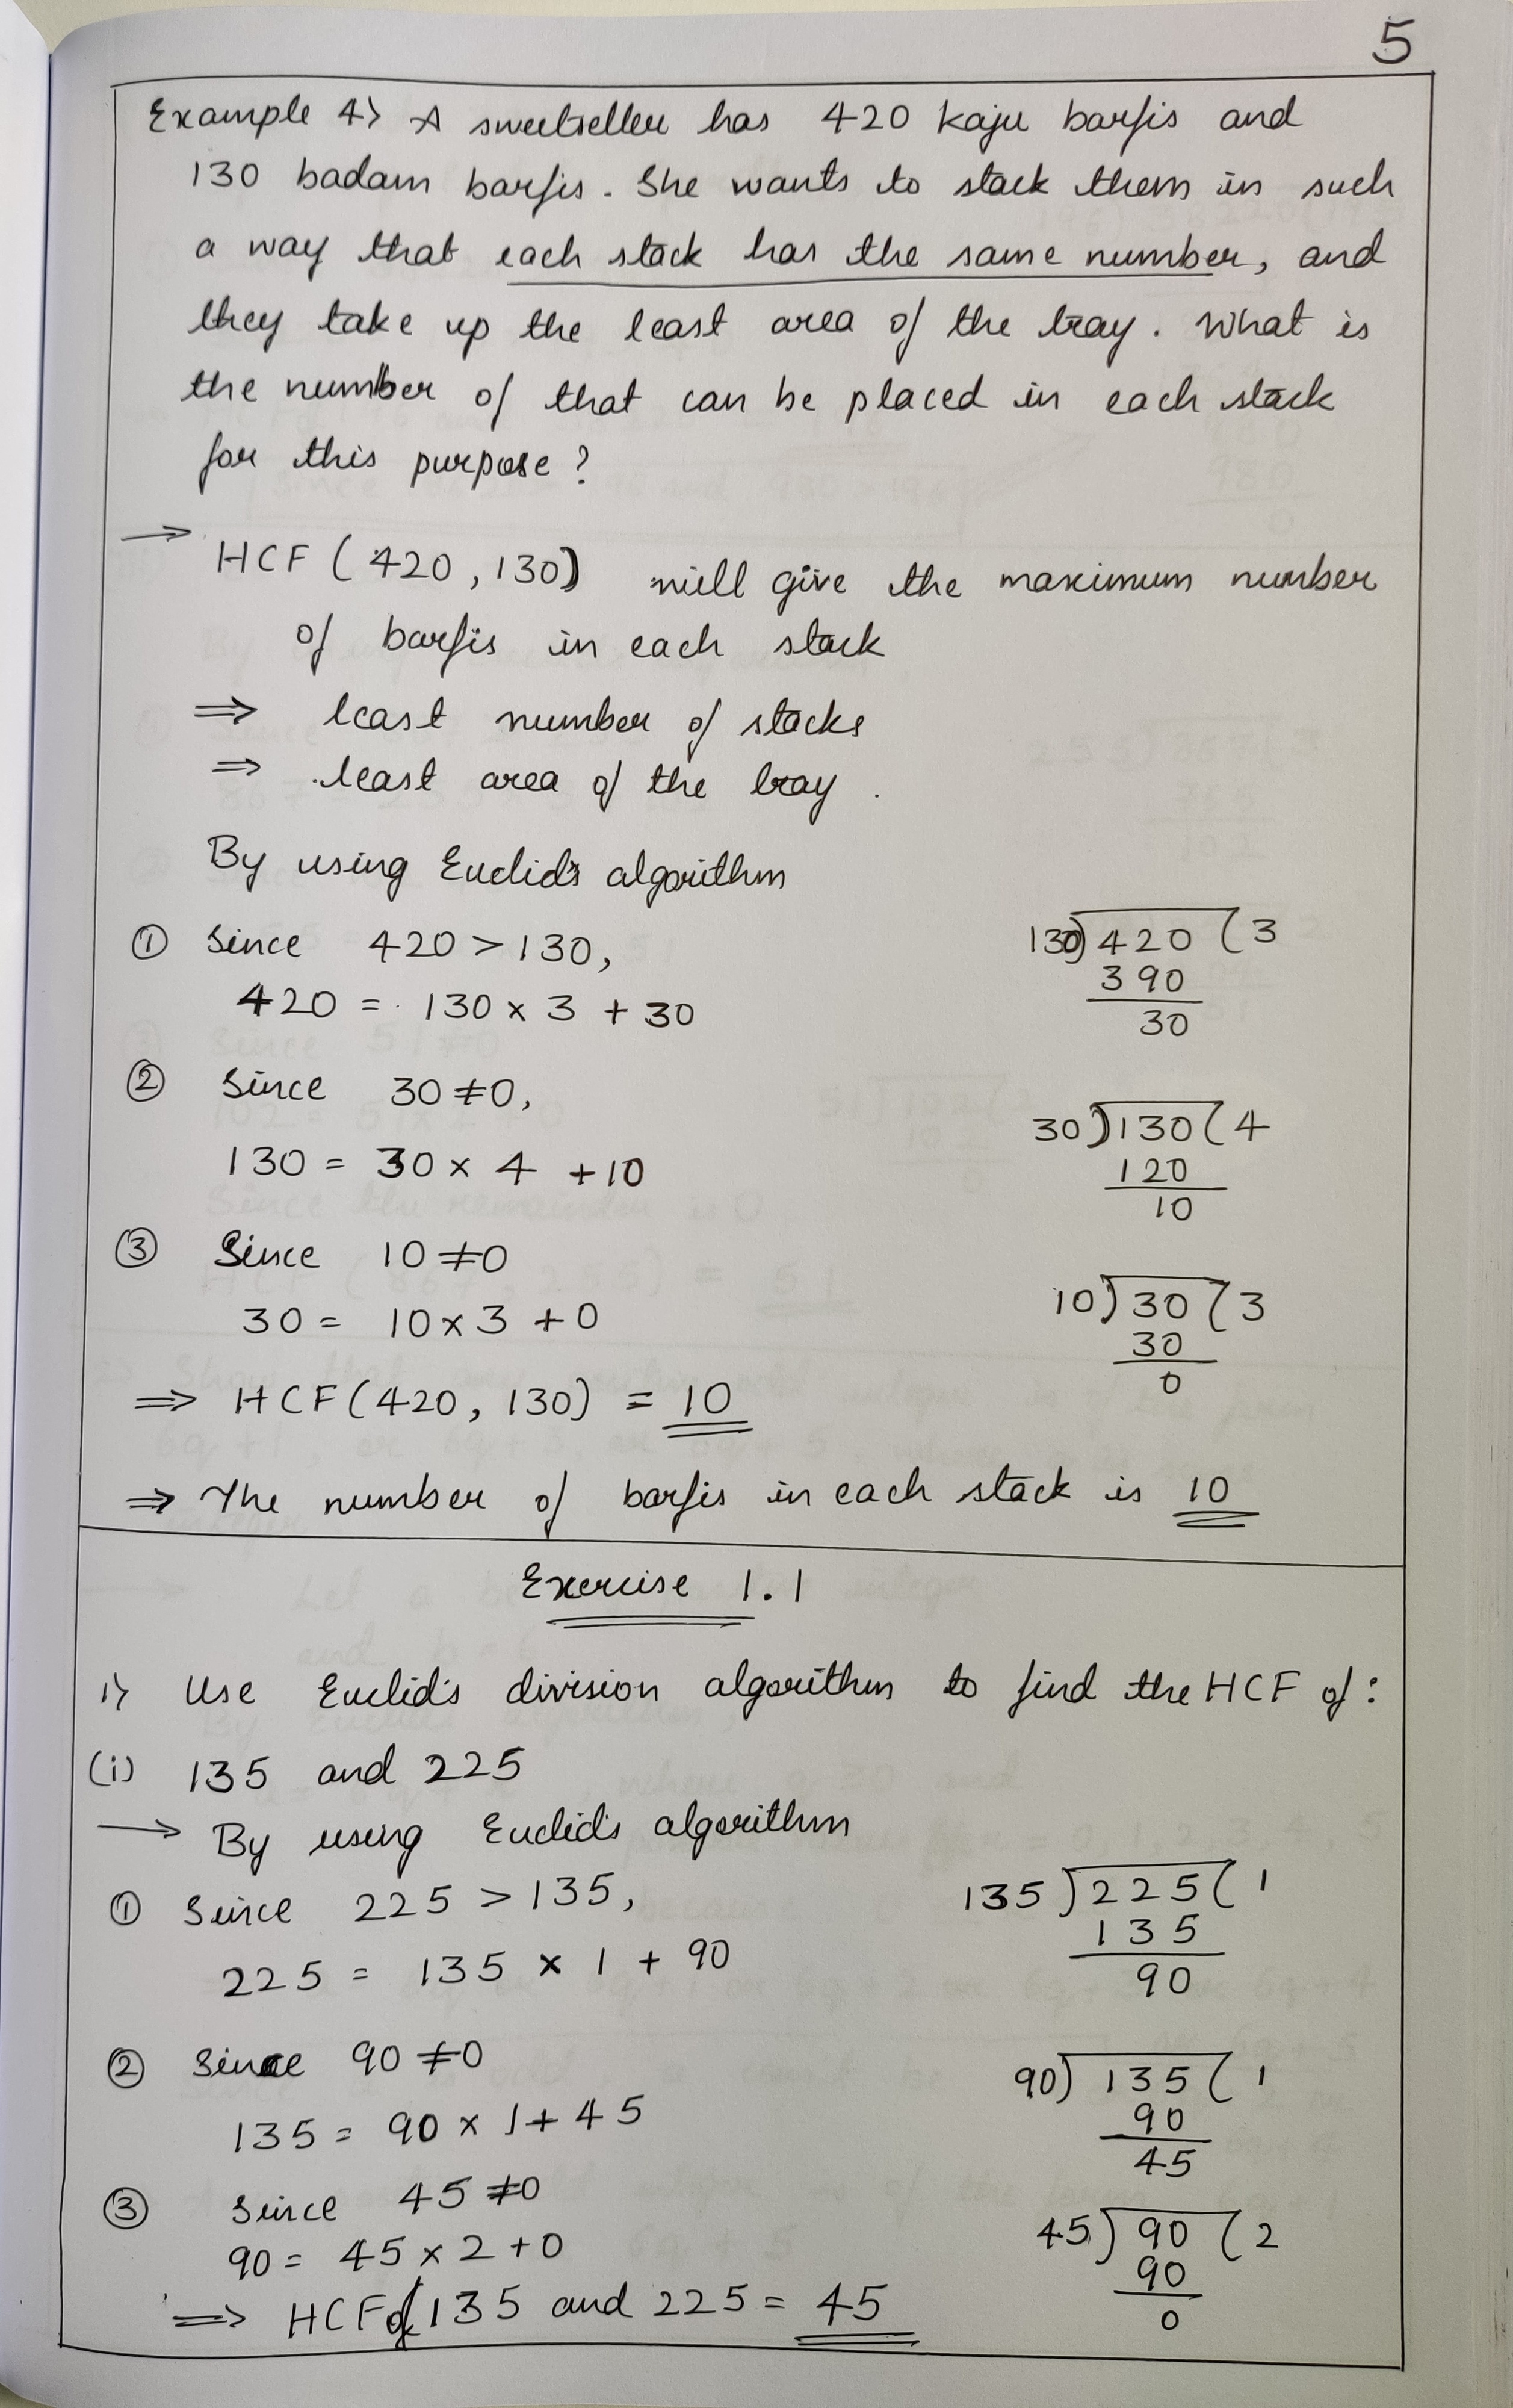 5
Example 4> A sweetseller has 420 kaju barfis and
130 badam barfis. She wants to stack them in such
a way that each stack has the same number, and
they take up the least area of the tray. What is
the number of that can be placed in each stack
for this purpose?
→ HCF (420, 130) will give the maximum number
of barfis in each stack
⇒ least number of stacks
⇒ least area of the tray.
By using Euclid's algorithm
① Since 420 > 130,
420 = 130 × 3 + 30
130)420(3
390
30
② Since 30 ≠ 0,
130 = 30 × 4 + 10
30)130(4
120
10
③ Since 10 ≠ 0
30 = 10 × 3 + 0
10)30(3
30
0
⇒ HCF (420, 130) = 10
⇒ The number of barfis in each stack is 10
Exercise 1.1
1> Use Euclid's division algorithm to find the HCF of:
(i) 135 and 225
→ By using Euclid's algorithm
① Since 225 > 135,
225 = 135 × 1 + 90
135)225(1
135
90
② Since 90 ≠ 0
135 = 90 × 1 + 45
90)135(1
90
45
③ Since 45 ≠ 0
90 = 45 × 2 + 0
45)90(2
90
0
⇒ HCF of 135 and 225 = 45